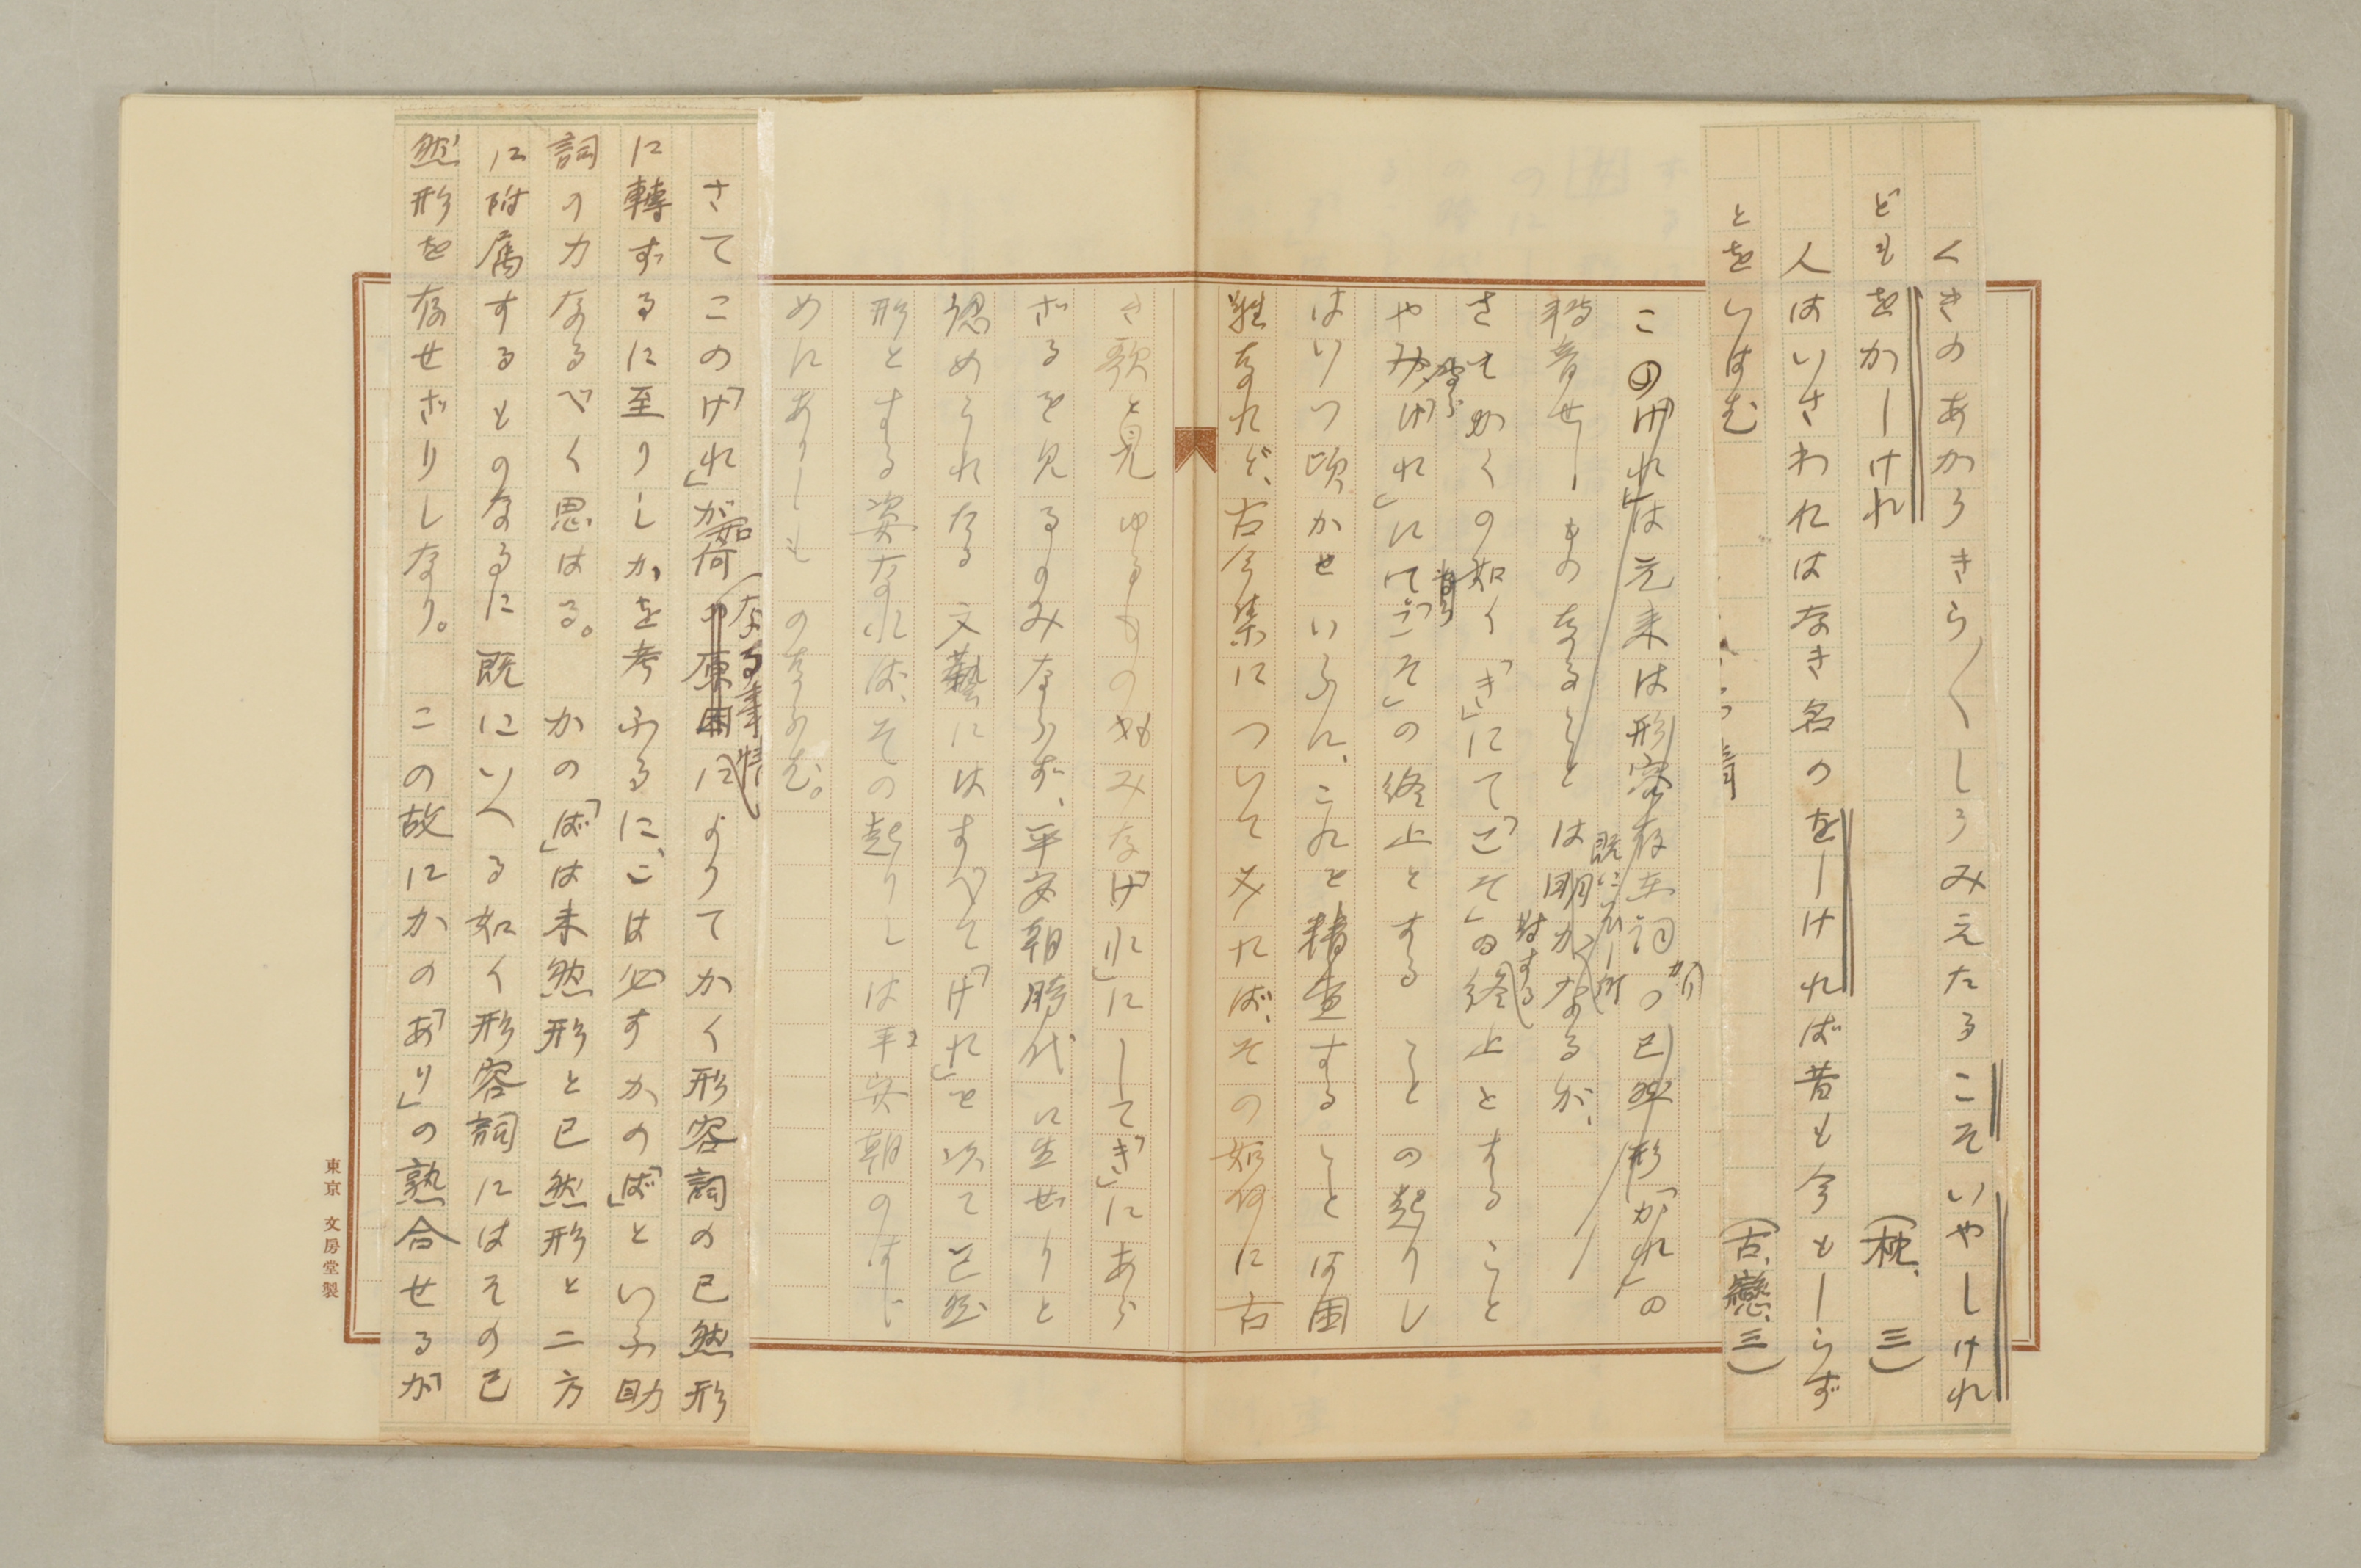 くきのあからきらきらしうみえたるこそいやしけれ
どもをかしけれ　（枕、三）
人はいさわれはなき名のをしければ昔も今もしらず
とをいはむ　（古、戀、三）
この「けれ」は元来は形容存在詞「かり」の已然形「かれ」の
轉音せしものなることは既にいひし所明かなるが、
さてかくの如く「き」にて「こそ」に対する終止とすること
やみ「けれ」にて「こそ」の終止とすることの起りし
はいつ頃かせいふに、これを精査することは困
難なれど、古今集について父れば、その如何に古
き歌と見ゆるものゝみな「けれ」にして「き」にあら
ざるを見るのみならず、平安朝時代に生ぜりと
認められたる文藝にはすべて「けれ」を以て已然
形とする姿なれば、その起りしは平安朝のはじ
めにありしものならむ。
さてこの「けれ」が如何なる事情によりてかく形容詞の已然形
に轉ずるに至りしかを考ふるに、こは必ずかの「ば」といふ助
詞の力なるべく思はる。かの「ば」は未然形と已然形と二方
に附属するものなるに既にいへる如く形容詞にはその已
然形を存せざりしなり。この故にかの「あり」の熟合せるが
東京　文房堂製